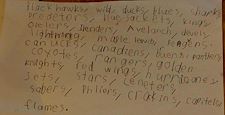 black hawks, wild, ducks, blues, sharks,
predeters, blue jackets, kings,
oielers, islenders, avelanch, devels,
lightning, maple leaves, pengens,
canucks, canadiens, bruens, panthers,
coyotes, rangers, golden
knights, red wings, hurricanes,
Jets, stars, seneters,
sabers, philers, cracins, capitels
flames.